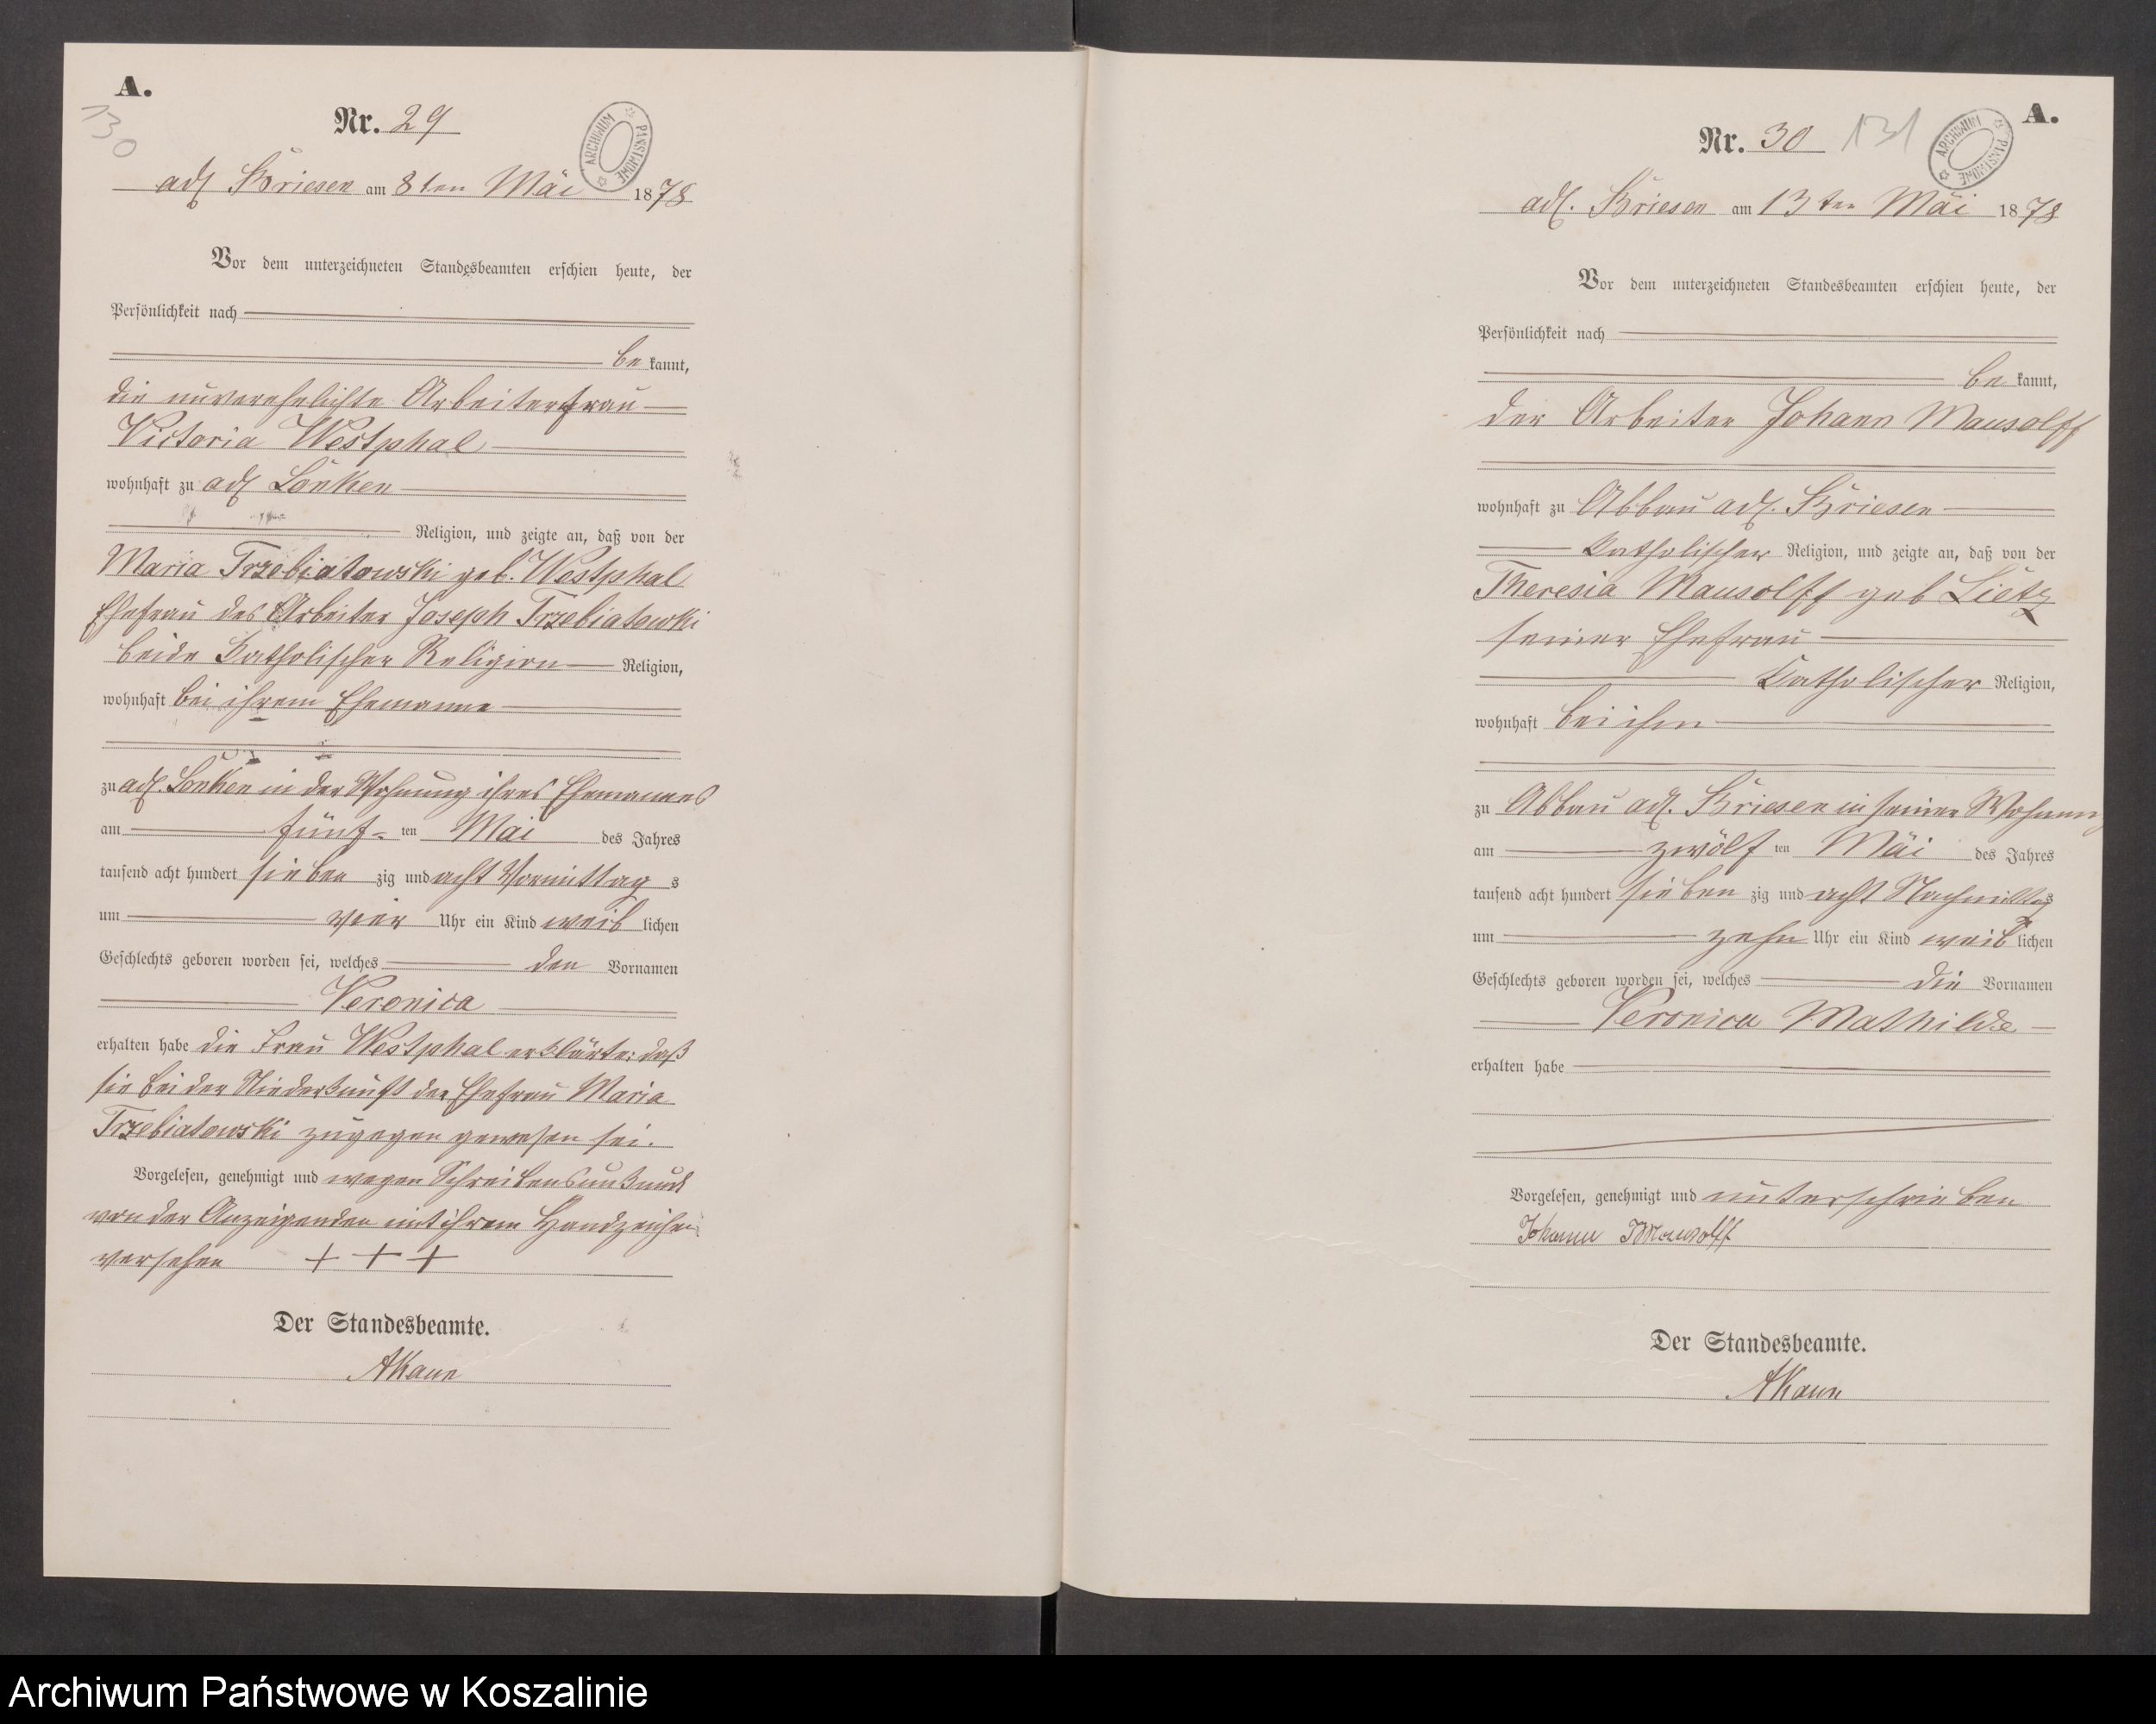 A.
130
Nr. 29
ARCHIWUM PAŃSTWOWE
adl Briesen am 8ten Mai 1878
Vor dem unterzeichneten Standesbeamten erschien heute, der
Persönlichkeit nach
be kannt,
die unverehelichte Arbeiterfrau
Victoria Westphal
wohnhaft zu adl Lonken
Religion, und zeigte an, daß von der
Maria Trzebiatowski geb. Westphal
Ehefrau des Arbeiter Joseph Trzebiatowski
beide Katholischer Religion Religion,
wohnhaft bei ihrem Ehemanne
zu adl. Lonken in der Wohnung ihres Ehemannes
am fünf- ten Mai des Jahres
tausend acht hundert sieben zig und acht Vormittag s
um vier Uhr ein Kind weib lichen
Geschlechts geboren worden sei, welches den Vornamen
Veronica
erhalten habe die Frau Westphal erklärte: daß
sie bei der Niederkunft der Ehefrau Maria
Trzebiatowski zugegen gewesen sei.
Vorgelesen, genehmigt und wegen Schreibensunkunde
von der Anzeigenden mit ihrem Handzeichen
versehen + + +
Der Standesbeamte.
AKann
A.
Nr. 30 131
ARCHIWUM PAŃSTWOWE
adl. Briesen am 13ten Mai 1878
Vor dem unterzeichneten Standesbeamten erschien heute, der
Persönlichkeit nach
be kannt,
der Arbeiter Johann Mausolff
wohnhaft zu Abbau adl. Briesen
Katholischer Religion, und zeigte an, daß von der
Theresia Mausolff geb Lietz
seiner Ehefrau
Katholischer Religion,
wohnhaft bei ihm
zu Abbau adl. Briesen in seiner Wohnung
am zwölf ten Mai des Jahres
tausend acht hundert sieben zig und acht Nachmittags
um zehn Uhr ein Kind weib lichen
Geschlechts geboren worden sei, welches die Vornamen
Veronica Mathilde
erhalten habe
Vorgelesen, genehmigt und unterschrieben
Johann Mausolff
Der Standesbeamte.
AKann
Archiwum Państwowe w Koszalinie